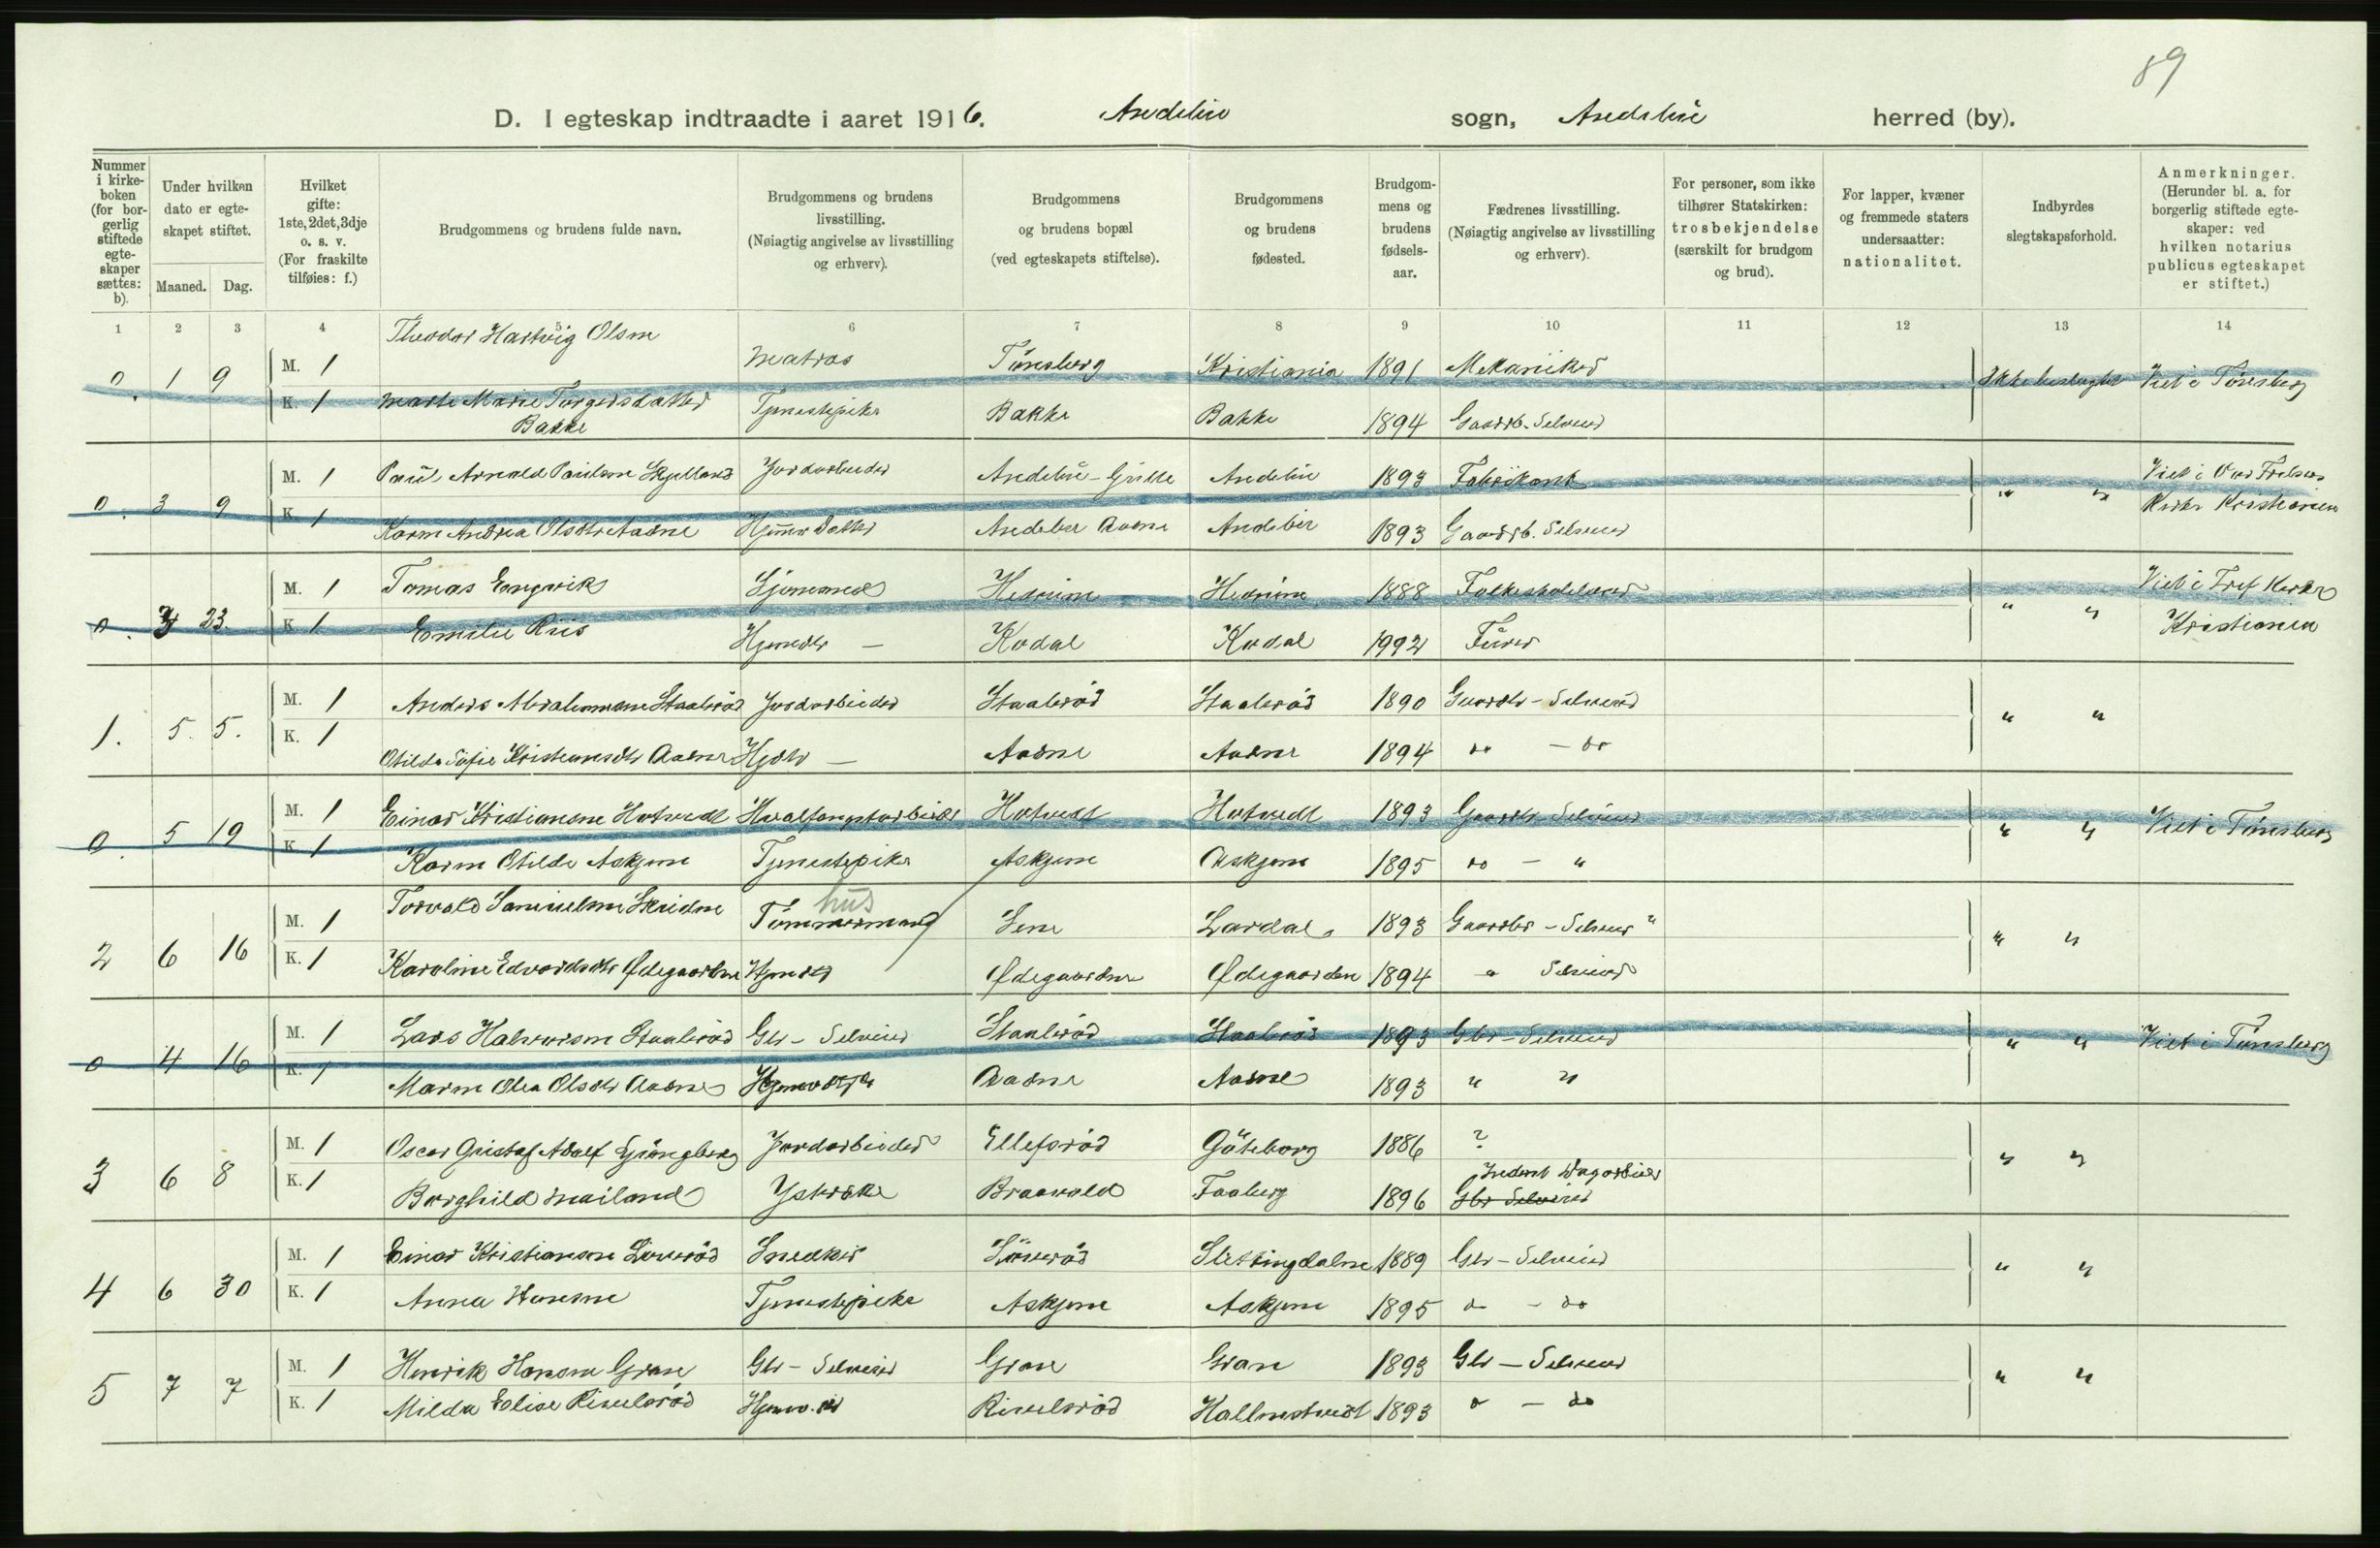 89
D. I egteskap indtraadte i aaret 1916. Andebu sogn, Andebu herred (by).
Nummer i kirke-boken (for bor-gerlig stiftede egte-skaper sættes: b).
Under hvilken dato er egte-skapet stiftet.
Maaned. Dag.
Hvilket gifte: 1ste, 2det, 3dje o. s. v. (For fraskilte tilføies: f.)
Brudgommens og brudens fulde navn.
Brudgommens og brudens livsstilling. (Nøiagtig angivelse av livsstilling og erhverv).
Brudgommens og brudens bopæl (ved egteskapets stiftelse).
Brudgommens og brudens fødested.
Brudgom-mens og brudens fødsels-aar.
Fædrenes livsstilling. (Nøiagtig angivelse av livsstilling og erhverv).
For personer, som ikke tilhører Statskirken: trosbekjendelse (særskilt for brudgom og brud).
For lapper, kvæner og fremmede staters undersaatter: nationalitet.
Indbyrdes slegtskapsforhold.
Anmerkninger. (Herunder bl. a. for borgerlig stiftede egte-skaper: ved hvilken notarius publicus egteskapet er stiftet.)
1 2 3 4 5 6 7 8 9 10 11 12 13 14
0. 1 9 M. 1 Theodor Hartvig Olsen Matros Tønsberg Kristiania 1891 Mekaniker Ikke beslegtet Viet i Tønsberg
K. 1 Marte Marie Torgersdatter Bakke Tjenestepike Bakke Bakke 1894 Gaardb. Selveier
0. 3 9 M. 1 Paul Arnold Paulsen Skjelland Jordarbeider Andebu - Andebu 1893 Fabrikant " " Viet i Vor Frelsers
K. 1 Karen Andrea Olsdtr Aadne Hjemv Datter Andebu Aadne Andebu 1893 Gaardb. Selveier Kirke Kristiania
0. 3 23. M. 1 Tomas Engevik Sjømand Hedrum Hedrum 1888 " " Viet i Tref Kirke
K. 1 Emilie Riis Hjemdtr — Kodal Kodal 1992 Kristiania
1. 5. 5. M. 1 Anders Abrahamsen Staalerød Jordarbeider Staalerød Staalerød 1890 Gaardbr - Selveier " "
K. 1 Otilde Sofie Kristensdtr Aadne Hjdtr — Aadne Aadne 1894 do — do
0. 5 19 M. 1 Einar Kristiansen Hotvedt Hvalfangstarbeider Hotvedt Hotvedt 1893 Gaardbr Selveier " " Viet i Tønsberg
K. 1 Karen Otilde Askjem Tjenestepike Askjem Askjem 1895 do — "
2 6 16 M. 1 Torvald Samuelsen Skridne Tømmermand hus Lardal 1893 Gaardbr - Selveier " " "
K. 1 Karoline Edvardsdtr Ødegaarden Hjemdtr Ødegaarden Ødegaarden 1894 " Selveier
0 4 16 M. 1 Lars Halvorsen Staalerød Gbr - Selveier Staalerød Staalerød 1893 Gbr - Selveier " " Viet i Tønsberg
K. 1 Maren Olea Olsdtr Aadne Aadne Aadne 1893 " "
3 6 8 M. 1 Oscar Gustaf Adolf Ljungberg Jordarbeider Ellefsrød Göteborg 1886 ? " "
K. 1 Borghild Mailand Braavold Faaberg 1896 Gbr Selveier
4 6 30 M. 1 Einar Kristiansen Sønerød Snedker Sønerød Slettingdalen 1889 Gbr - Selveier " "
K. 1 Anna Hansen Tjenestepike Askjem Askjem 1895 do - do
5 7 7 M. 1 Henrik Hansen Gran Gbr - Selveier Gran Gran 1893 Gbr — Selveier " "
K. 1 Milda Elise Rivelsrød Rivelsrød Hallenstvedt 1893 do — do